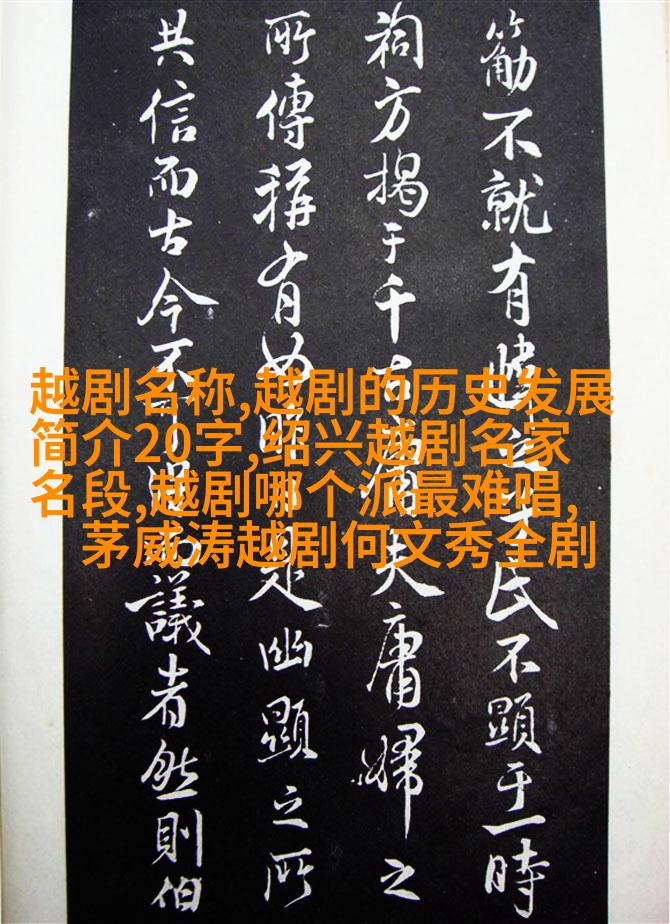 不就有民不顯于一時
祠方揭于千古庸夫庸婦之
所傳稱有如是幽顯之所
共信而古今不議者然則伯
越剧名称,越剧的历史发展
简介20字,绍兴越剧名家
名段,越剧哪个派最难唱,
茅威涛越剧何文秀全剧